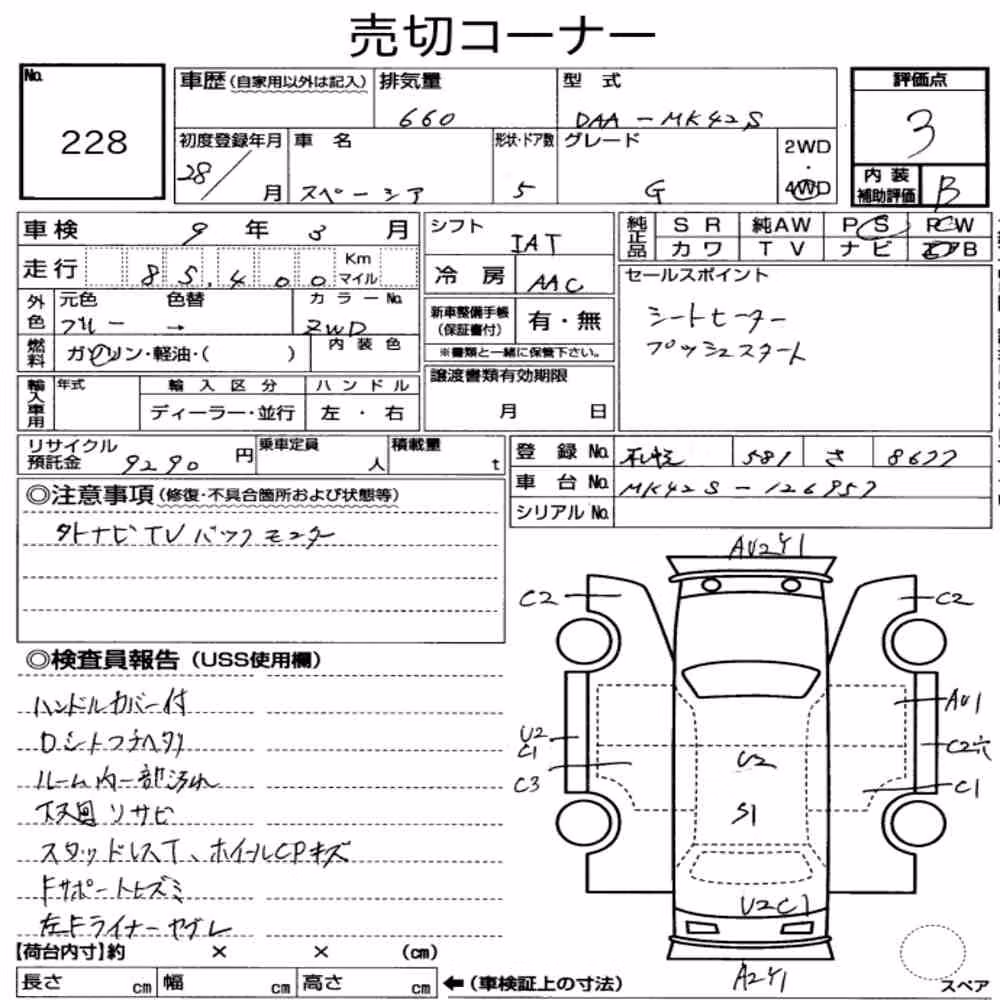 売切コーナー
No. 228
車歴(自家用以外は記入) 排気量 660 型式 DAA-MK42S 評価点 3
初度登録年月 28/ 月 車名 スペーシア 形状・ドア数 5 グレード G 2WD・4WD
内装補助評価 B
車検 9年3月 シフト IAT 純正品 SR 純AW PS PW
カワ TV ナビ エアB
走行 85,400 Km マイル 冷房 AAC
セールスポイント
シートヒーター
プッシュスタート
外色 元色 ブルー 色替 → カラーNo. ZWD
新車整備手帳(保証書付) 有・無
※書類と一緒に保管下さい。
燃料 ガソリン・軽油・( ) 内装色
輸入車用 年式 輸入区分 ディーラー・並行 ハンドル 左・右
譲渡書類有効期限 月 日
リサイクル預託金 9290円 乗車定員 人 積載量 t
登録No. 札幌 581 さ 8677
車台No. MK42S-126957
シリアルNo.
◎注意事項(修復・不具合箇所および状態等)
外ナビTV バックモニター
◎検査員報告(USS使用欄)
ハンドルカバー付
Dシートフチヘタリ
ルーム内一部汚れ
下廻リサビ
スタッドレスT、ホイールCPキズ
Fサポートヒズミ
左Fライナーヤブレ
AU2Y1
C2 C2
AU1
U2
C1
C2穴
C3 C1
U2
S1
U2C1
A2Y1
スペア
【荷台内寸】約 × × (cm)
長さ cm 幅 cm 高さ cm ←(車検証上の寸法)